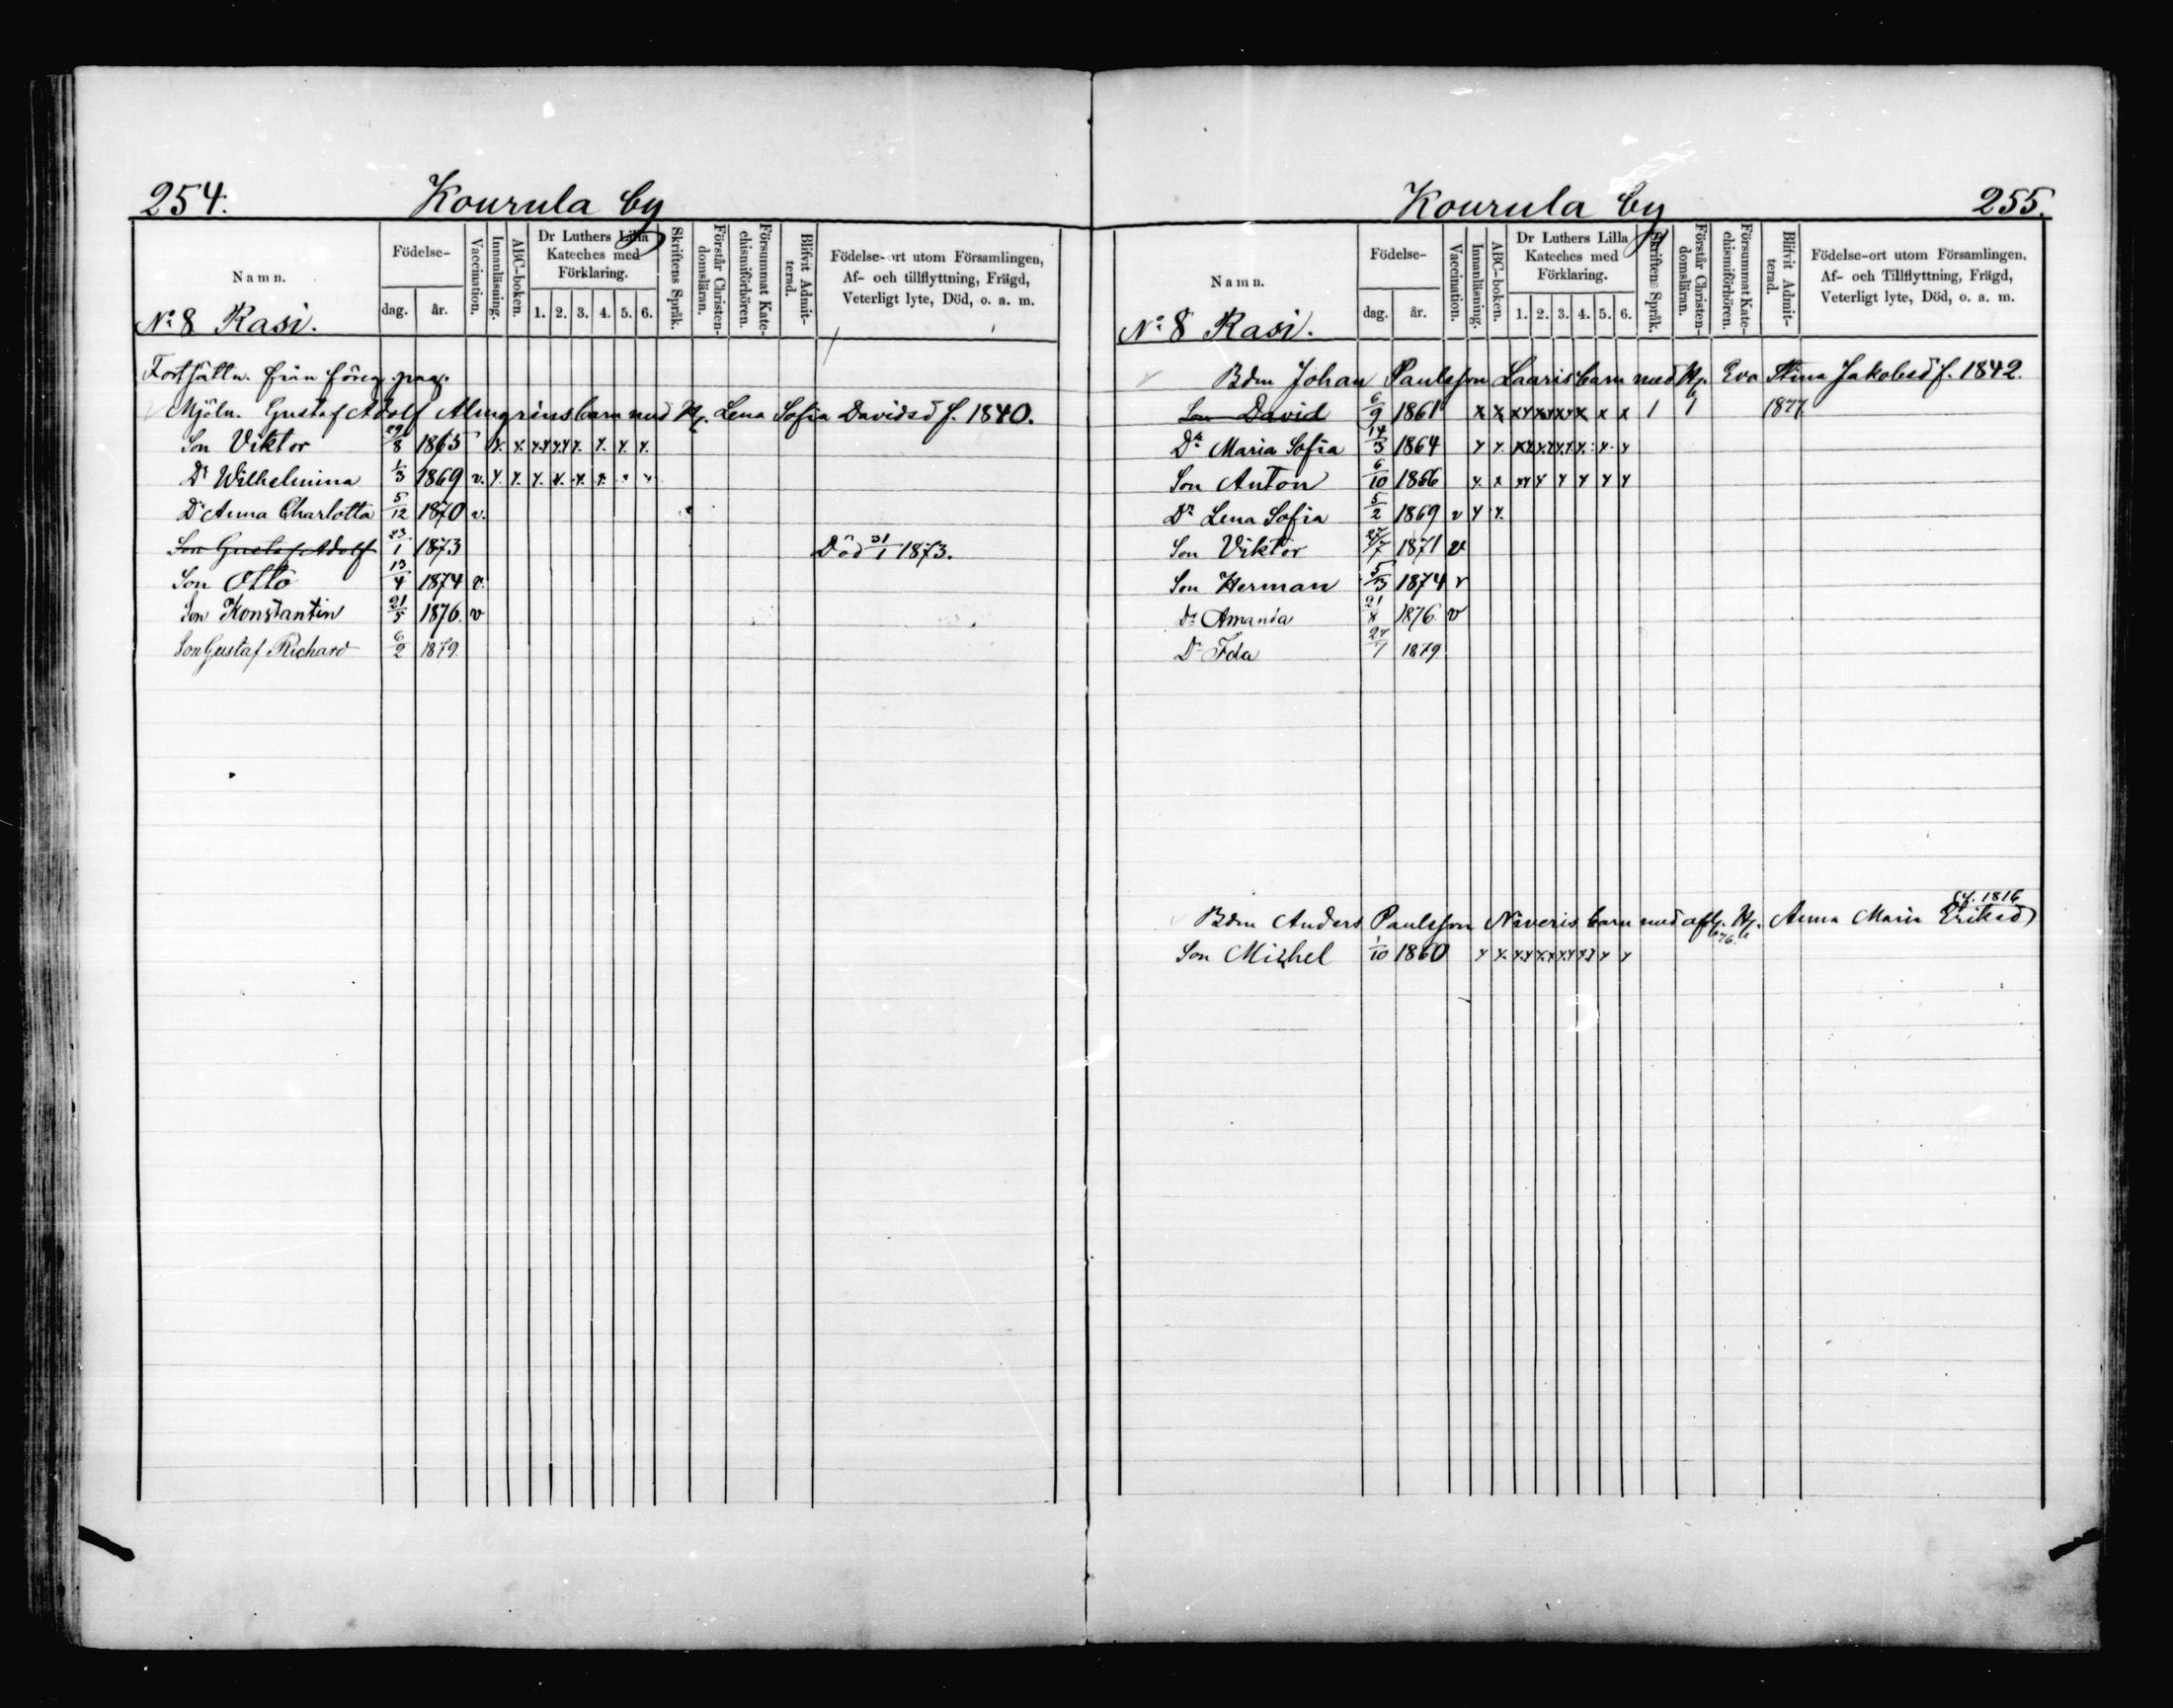 254. Kourula by
Namn. Födelse- dag. år. Vaccination. Innanläsning. ABC-boken. Dr Luthers Lilla Kateches med Förklaring. 1. 2. 3. 4. 5. 6. Skriftens Språk. Förstår Christendomsläran. Försummat Katechismiförhören. Blifvit Admitterad. Födelse-ort utom Församlingen, Af- och tillflyttning, Frägd, Veterligt lyte, Död, o. a. m.
No 8 Rasi.
Fortsättn. från föreg. pag.
Mjöln. Gustaf Adolf Almgréns barn med H. Lena Sofia Davidsd f. 1840.
Son Viktor 29/8 1865
Dr Wilhelmina 1/3 1869 v.
Dr Anna Charlotta 5/12 1870 v.
Son Gustaf Adolf 23/1 1873 Död 31/1 1873.
Son Otto 13/4 1874 v.
Son Konstantin 21/5 1876. v
Son Gustaf Richard 6/2 1879.
Kourula by 255.
Namn. Födelse- dag. år. Vaccination. Innanläsning. ABC-boken. Dr Luthers Lilla Kateches med Förklaring. 1. 2. 3. 4. 5. 6. Skriftens Språk. Förstår Christendomsläran. Försummat Katechismiförhören. Blifvit Admitterad. Födelse-ort utom Församlingen, Af- och Tillflyttning, Frägd, Veterligt lyte, Död, o. a. m.
No 8 Rasi.
Bdm Johan Paulsson Laaris barn med H. Eva Stina Jakobsd f. 1842.
Son David 6/9 1861 x x 1 1 1877
Dr Maria Sofia 14/3 1864
Son Anton 6/10 1866
Dr Lena Sofia 5/2 1869 v
Son Viktor 1871 v
Son Herman 5/3 1874 v
Dr Amanda 21/8 1876. v
Dr Ida 27/7 1879
f. 1816
Bdm Anders Paulsson Niveris barn med afl. H. Anna Maria Eriksd
Son Michel 1/10 1860